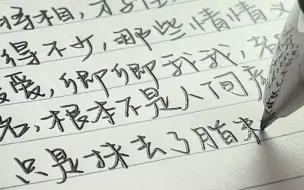 将相,才
得不少,那些情情
爱爱,卿卿我我,
名,根本不是人间
只是抹去了脂